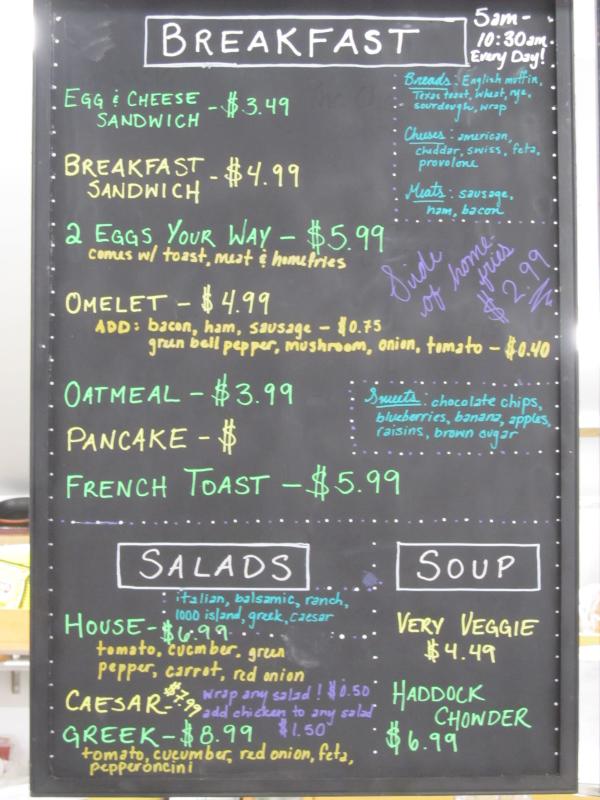 BREAKFAST
5am-
10:30am
Every Day!
EGG & CHEESE
SANDWICH - $3.49
Breads: English muffin,
Texas toast, wheat, rye,
sourdough, wrap
Cheeses: american,
cheddar, swiss, feta,
provolone
Meats: sausage,
ham, bacon
BREAKFAST
SANDWICH - $4.99
2 EGGS YOUR WAY - $5.99
comes w/ toast, meat & homefries
Side
of home
fries
$2.99
OMELET - $4.99
ADD: bacon, ham, sausage - $0.75
green bell pepper, mushroom, onion, tomato - $0.40
OATMEAL - $3.99
Sweets: chocolate chips,
blueberries, banana, apples,
raisins, brown sugar
PANCAKE - $
FRENCH TOAST - $5.99
SALADS
italian, balsamic, ranch,
1000 island, greek, caesar
HOUSE - $6.99
tomato, cucmber, green
pepper, carrot, red onion
CAESAR - $7.99
wrap any salad! $0.50
add chicken to any salad
$1.50
GREEK - $8.99
tomato, cucumber, red onion, feta,
pepperoncini
SOUP
VERY VEGGIE
$4.49
HADDOCK
CHOWDER
$6.99